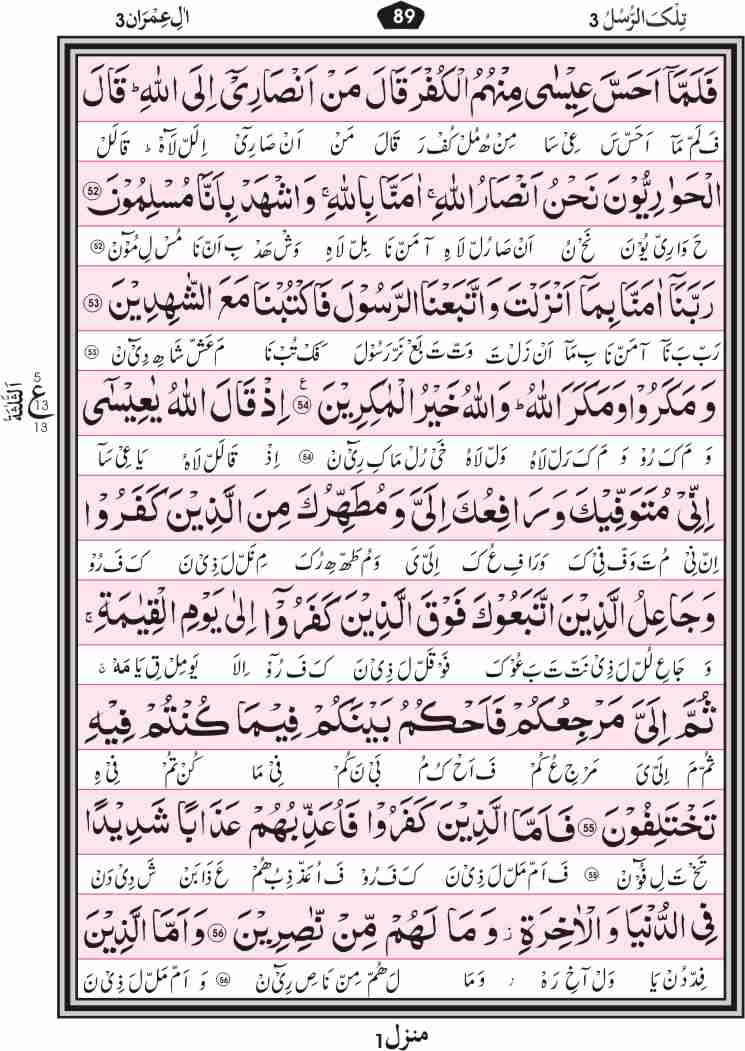 تِلْكَ الرُّسُلُ 3
89
اٰلِ عِمْرَان 3
فَلَمَّاۤ اَحَسَّ عِيْسٰى مِنْهُمُ الْكُفْرَ قَالَ مَنْ اَنْصَارِىْۤ اِلَى اللّٰهِ ؕ قَالَ
فَ لَمْ مَاۤ اَحَسْ سَ عِىْ سَا مِنْ هُ مُلْ كُفْ رَ قَالَ مَنْ اَنْ صَا رِىْۤ اِلَلْ لَاهْ ؕ قَالَلْ
الْحَوَارِيُّوْنَ نَحْنُ اَنْصَارُ اللّٰهِ ۚ اٰمَنَّا بِاللّٰهِ ۚ وَاشْهَدْ بِاَنَّا مُسْلِمُوْنَ 52
حَ وَارِىْ يُوْ نَ نَحْ نُ اَنْ صَا رُلْ لَا هِ آ مَنْ نَا بِلْ لَاهِ وَشْ هَدْ بِ اَنْ نَا مُسْ لِ مُوْٓنْ 52
رَبَّنَاۤ اٰمَنَّا بِمَاۤ اَنْزَلْتَ وَاتَّبَعْنَا الرَّسُوْلَ فَاكْتُبْنَا مَعَ الشّٰهِدِيْنَ 53
رَبْ بَ نَاۤ آ مَنْ نَا بِ مَاۤ اَنْ زَلْ تَ وَتْ تَ بَعْ نَرْ رَسُوْلَ فَكْ تُبْ نَا مَ عَشْ شَا هِ دِىْٓ نْ 53
وَ مَكَرُوْا وَ مَكَرَ اللّٰهُ ؕ وَاللّٰهُ خَيْرُ الْمٰكِرِيْنَ 54 ع اِذْ قَالَ اللّٰهُ يٰعِيْسٰۤى
الثلثة
5
ع
13
13
وَ مَ كَ رُوْ وَ مَ كَ رَلْ لَاهْ وَلْ لَاهُ خَىْ رُلْ مَا كِ رِىْٓ نْ 54 اِذْ قَالَلْ لَاهُ يَا عِىْ سَاۤ
اِنِّىْ مُتَوَفِّيْكَ وَ رَافِعُكَ اِلَىَّ وَ مُطَهِّرُكَ مِنَ الَّذِيْنَ كَفَرُوْا
اِنْ نِىْ مُ تَ وَفْ فِىْ كَ وَ رَا فِ عُ كَ اِلَىْ ىَ وَ مُ طَهْ هِ رُ كَ مِ نَلْ لَ ذِىْ نَ كَ فَ رُوْ
وَ جَاعِلُ الَّذِيْنَ اتَّبَعُوْكَ فَوْقَ الَّذِيْنَ كَفَرُوْۤا اِلٰى يَوْمِ الْقِيٰمَةِ ۚ
وَ جَاعِ لُلْ لَ ذِىْ نَتْ تَ بَ عُوْ كَ فَوْ قَلْ لَ ذِىْ نَ كَ فَ رُوْۤ اِلَا يَوْ مِلْ قِ يَا مَهْ ۚ
ثُمَّ اِلَىَّ مَرْجِعُكُمْ فَاَحْكُمُ بَيْنَكُمْ فِيْمَا كُنْتُمْ فِيْهِ
ثُمْ مَ اِلَىْ ىَ مَرْ جِ عُ كُمْ فَ اَحْ كُ مُ بَىْ نَ كُمْ فِىْ مَا كُنْ تُمْ فِىْ هِ
تَخْتَلِفُوْنَ 55 فَاَمَّا الَّذِيْنَ كَفَرُوْا فَاُعَذِّبُهُمْ عَذَابًا شَدِيْدًا
تَخْ تَ لِ فُوْٓنْ 55 فَ اَمْ مَلْ لَ ذِىْ نَ كَ فَ رُوْ فَ اُ عَذْ ذِ بُ هُمْ عَ ذَا بَنْ شَ دِىْ دَنْ
فِى الدُّنْيَا وَالْاٰخِرَةِ ز وَ مَا لَهُمْ مِّنْ نّٰصِرِيْنَ 56 وَاَمَّا الَّذِيْنَ
فِدْ دُنْ يَا وَلْ آخِ رَهْ ز وَ مَا لَ هُمْ مِنْ نَا صِ رِىْٓ نْ 56 وَ اَمْ مَلْ لَ ذِىْ نَ
منزل 1